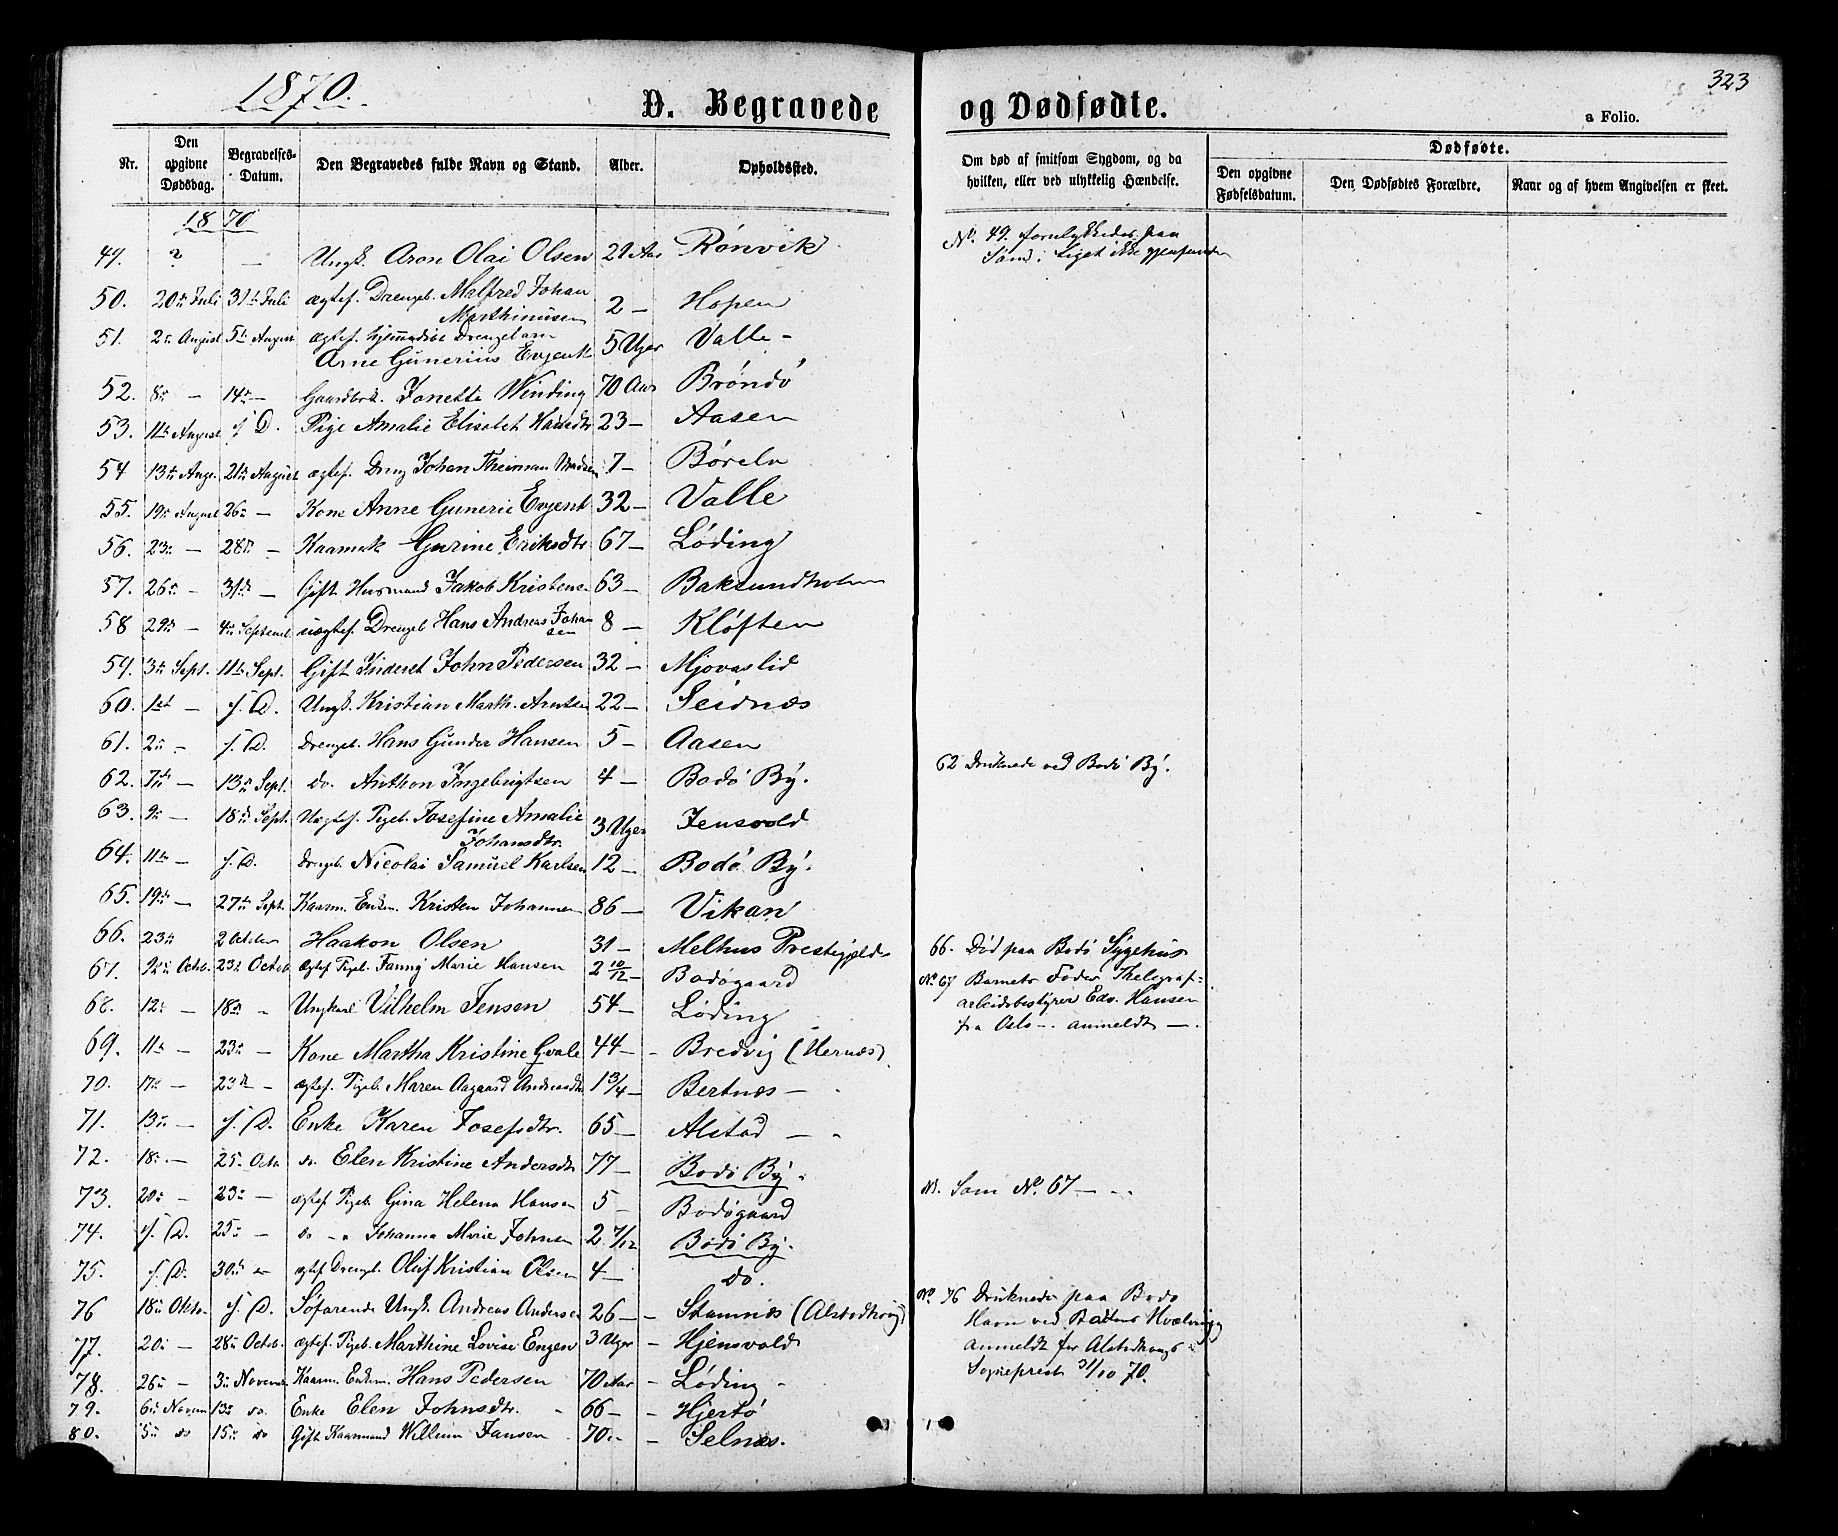 1870.
D. Begravede
og Dødfødte.
323
a Folio.
Nr.
Den opgivne Dødsdag.
Begravelses-Datum.
Den Begravedes fulde Navn og Stand.
Alder.
Opholdssted.
Om død af smitsom Sygdom, og da hvilken, eller ved ulykkelig Hændelse.
Dødfødte.
Den opgivne Fødselsdatum.
Den Dødfødtes Forældre.
Naar og af hvem Angivelsen er skeet.
1870
49. ? — Ungk. Aron Olai Olsen 29 Aar Rønvik No. 49. forulykkedes paa
Søen; Liget ikke gjenfunden
50. 20de Juli 31te Juli ægtef. Drengeb. Malfred Johan
Marthinusen 2 — Hopen
51. 2den August 5te August ægtef. hjemmedøbt Drengebarn
Arne Gunerius Evjenth 5 Uger Valle -
52. 8de — 14de — Jonette Winding 70 Aar Brøndø
53. 11te August s. D. Pige Amalie Elisabet 23 — Aasen
54 13de Aug. 21de August ægtef. Dreng Johan 7 —
55. 19de August 26de — Kone Anne Gunerie Evjenth 32 — Valle
56. 23de — 28de — Gurine Eriksdtr 67 — Løding
57. 26de — 31de — Gift Husmand Jakob Kristense 63 — Baksundholm
58 29de — 4de September uægtef. Drengeb Hans Andreas Johan
sen 8 — Kløften
59. 3de Sept. 11te Sept. Gift Inderst John Pedersen 32 — Mjovaslid
60. 1ste — s. D. Ungk. Kristian Marth. Arntsen 22 — Seidnæs
61. 2den — s. D. Drengeb. Hans Gunder Hansen 5 — Aasen
62. 7de — 13de Sept. do. Anthon Ingebrigtsen 4 — Bodø By. 62 Druknede ved Bodø By.
63. 9de — 18de Sept. Uægtef. Pigeb. Josefine Amalie
Johansdtr. 3 Uger Jensvold
64. 11te — s. D. Drengeb. Nicolai Samuel Karlsen 12 — Bodø By.
65. 19de — 27de Sept. Kaarm. Enkem. Kristen Johannesen 86 — Vikan
66. 23de 2 October Haakon Olsen 31 — Melhus Prestegjeld 66. Død paa Bodø Sygehus
67. 12te Octob. 23de Octob ægtef Pigeb. Fanny Marie Hansen 2 10/12 — Bodøgaard No. 67 Barnets Fader, Thelegraf-
arbeidsbestyrer Edv. Hansen
fra Oslo — anmeldt — .
68. 12te — 18de — Ungkarl Vilhelm Jensen 54 — Løding
69. 11te — 23de — Kone Martha Kristine Qvale 44 — Bredvig (Nernæs)
70. 17de — 23de — ægtef. Pigeb. Maren Aagaard Andreasdtr 1 3/4 — Bertnæs —
71. 13de — s. D. Enke Karen Josefsdtr. 65 — Alstad —
72. 18de — 25de Octo do. Elen Kristine Andersdtr 77 — Bodø By.
73. 20de — 23de — ægtef Pigeb. Gina Helena Hansen 5 — Bodøgaard Som No. 67 —
74. s. D. 25de — do — Johanna Marie Johnsen 2 7/12 Bodø By.
75. s. D. 30de — ægtef Drengeb. Oluf Kristian Olsen 4 — do.
76 18de Octo. s. D. Søfarende Ungk. Andreas Andersen 26 — Stamnæs (Alstadhoug) No. 76 Druknede paa Bodø
Havn ved Baadens Kvælving
anmeldt for Alstadhougs
Sogneprest 31/10 70.
77. 20de — 28de Octob. ægtef Pigeb. Marthine Lovise Engen 3 Uger — Hjensvold
78. 26de — 3de Novemb. Kaarm. Enkem. Hans Pedersen 70 Aar — Løding -
79. 6te Novem 13de do. Enke Elen Johnsdtr. 66 — Hjertø
80. 5te do 15de do Gift Kaarmand Willum Jansen 70 — Selnæs.